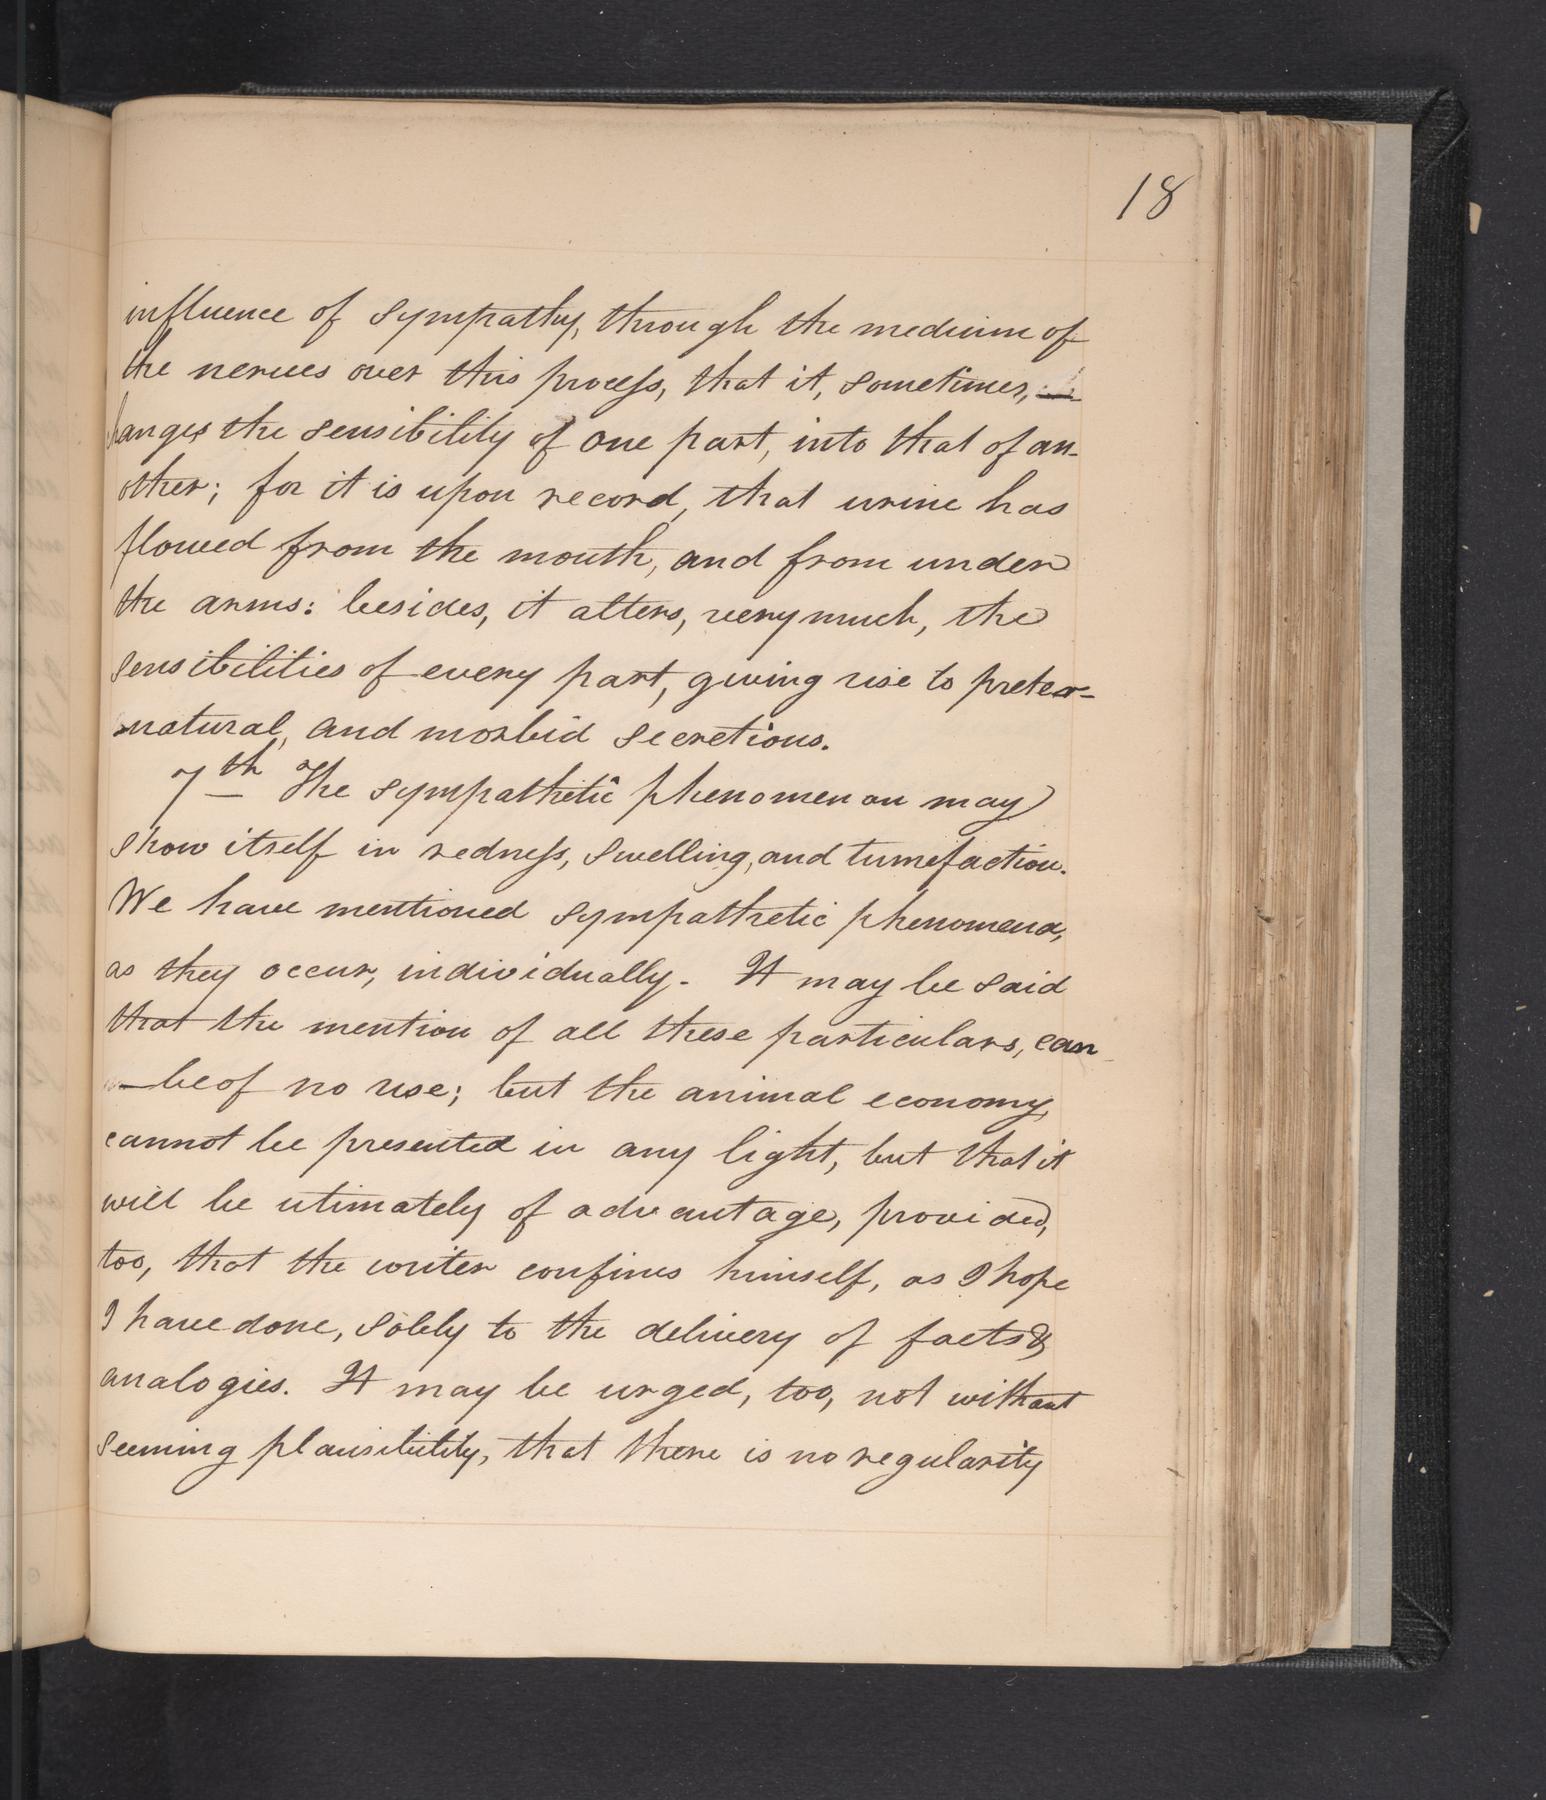 18
influence of sympathy, through the medium of
the nerves over this process, that it, sometimes,
changes the sensibility of one part, into that of an-
other; for it is upon record, that urine has
flowed from the mouth, and from under
the arms: besides, it alters, very much, the
sensibilities of every part, giving rise to preter-
natural, and morbid secretions.
7th The sympathetic phenomenon may
show itself in redness, swelling, and tumefaction.
We have mentioned sympathetic phenomena,
as they occur, individually. It may be said
that the mention of all these particulars, can
be of no use; but the animal economy,
cannot be presented in any light, but that it
will be utimately of advantage, provided,
too, that the writer confines himself, as I hope
I have done, solely to the delivery of facts &
analogies. It may be urged, too, not without
seeming plausibility, that there is no regularity